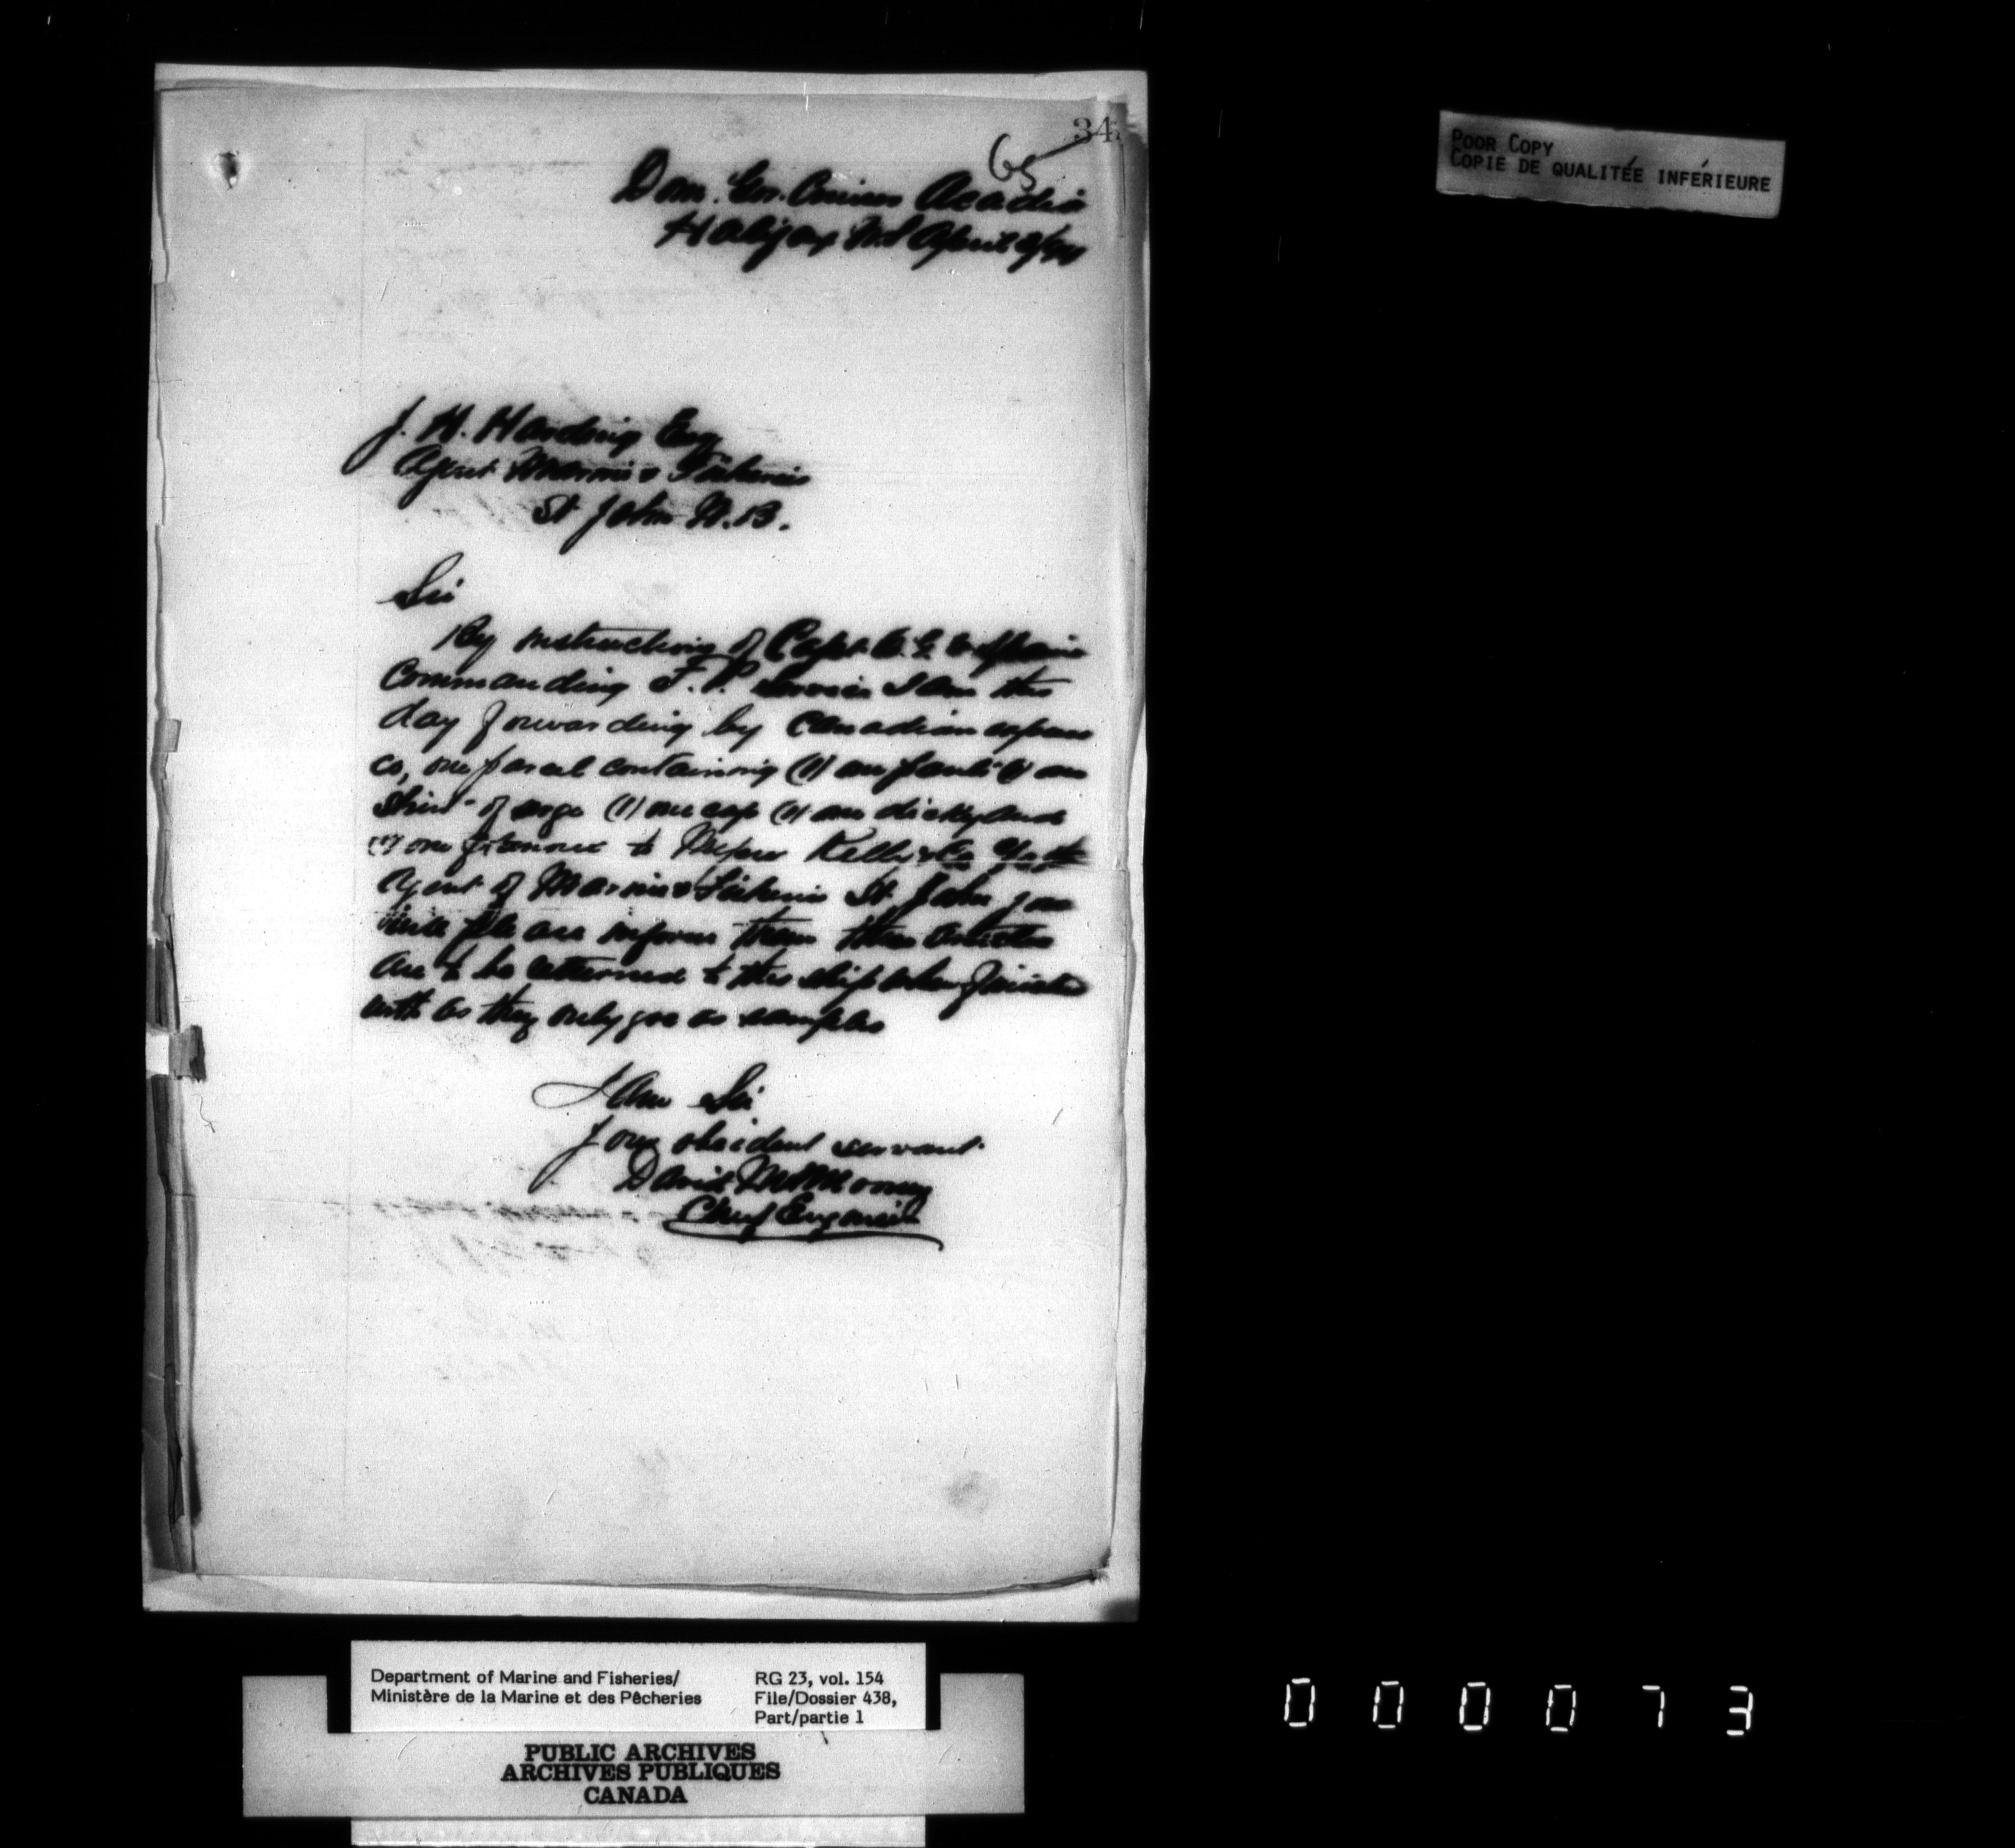 34
65
Dom. Gov. Cruiser Acadia
Halifax N.S April 9/
J. H. Harding Esq
Agent Marine & Fisheries
St John N.B.
Sir
By instructions of Capt O. G. V. Spain
Commanding F. P. Service I am this
day forwarding by Canadian express
co, one parcel containing (1) one pants (1) one
shirt of serge (1) one cap (1) one dicky and
(1) one to Messrs Kelly & Co
Agent of Marine & Fisheries St. John you
will please inform them these articles
are to be returned to this ship when finished
with as they only goe as samples
I am Sir
your obeident servant
David
Chief Engineer
POOR COPY
COPIE DE QUALITÉE INFÉRIEURE
Department of Marine and Fisheries/
Ministère de la Marine et des Pêcheries
RG 23, vol. 154
File/Dossier 438,
Part/partie 1
PUBLIC ARCHIVES
ARCHIVES PUBLIQUES
CANADA
000073